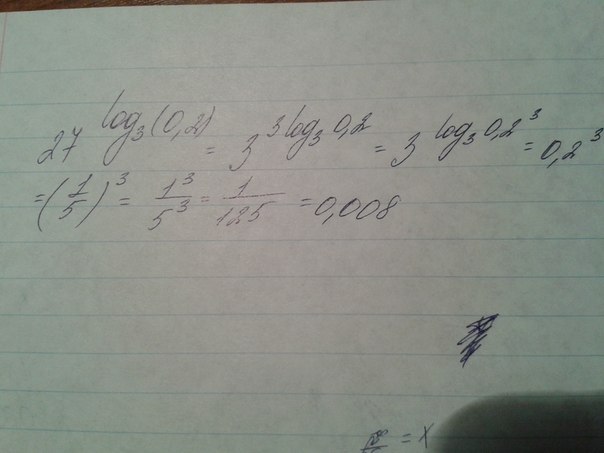 27^log₃(0,2) = 3^3log₃0,2 = 3^log₃0,2³ = 0,2³
= (1/5)³ = 1³/5³ = 1/125 = 0,008
= x